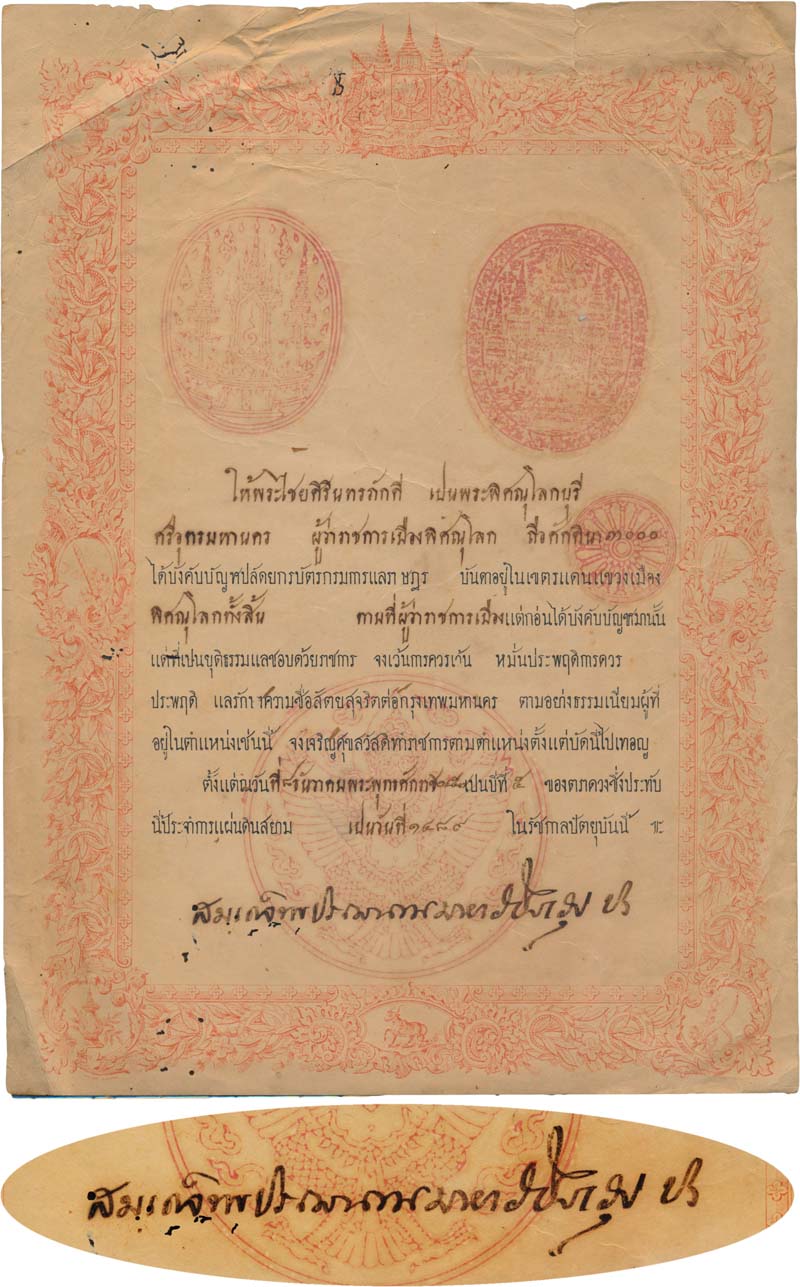 ให้พระไชยศิรินทรภักดี เปนพระพิศณุโลกบุรี
ศรีอุตรมหานคร ผู้ว่าราชการเมืองพิศณุโลก ถือศักดินา ๓๐๐๐
ได้บังคับบัญชาปลัดยกรบัตรกรมการแลราษฎร บันดาอยู่ในเขตรแดนแขวงเมือง
พิศณุโลกทั้งสิ้น ตามที่ผู้ว่าราชการเมืองแต่ก่อนได้บังคับบัญชามานั้น
แต่ที่เปนยุติธรรมแลชอบด้วยราชการ จงเว้นการควรเว้น หมั่นประพฤติการควร
ประพฤติ แลรักษาความซื่อสัตยสุจริตต่อกรุงเทพมหานคร ตามอย่างธรรมเนียมผู้ที่
อยู่ในตำแหน่งเช่นนี้ จงเจริญศุขสวัสดิทำราชการตามตำแหน่งตั้งแต่บัดนี้ไปเทอญ
ตั้งแต่ณวันที่ ๘ ธันวาคม เปนปีที่ ๕ ของตราดวงซึ่งประทับ
นี้ประจำการแผ่นดินสยาม เปนวันที่ ในรัชกาลปัตยุบันนี้ ฯะ